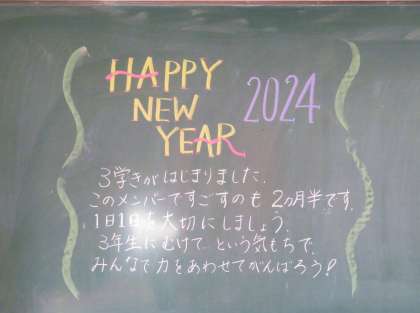 HAPPY
NEW
YEAR
2024
3学きがはじまりました.
このメンバーですごすのも 2ヵ月半です.
1日1日を大切にしましょう.
3年生にむけて という気もちで,
みんなで力をあわせてがんばろう!